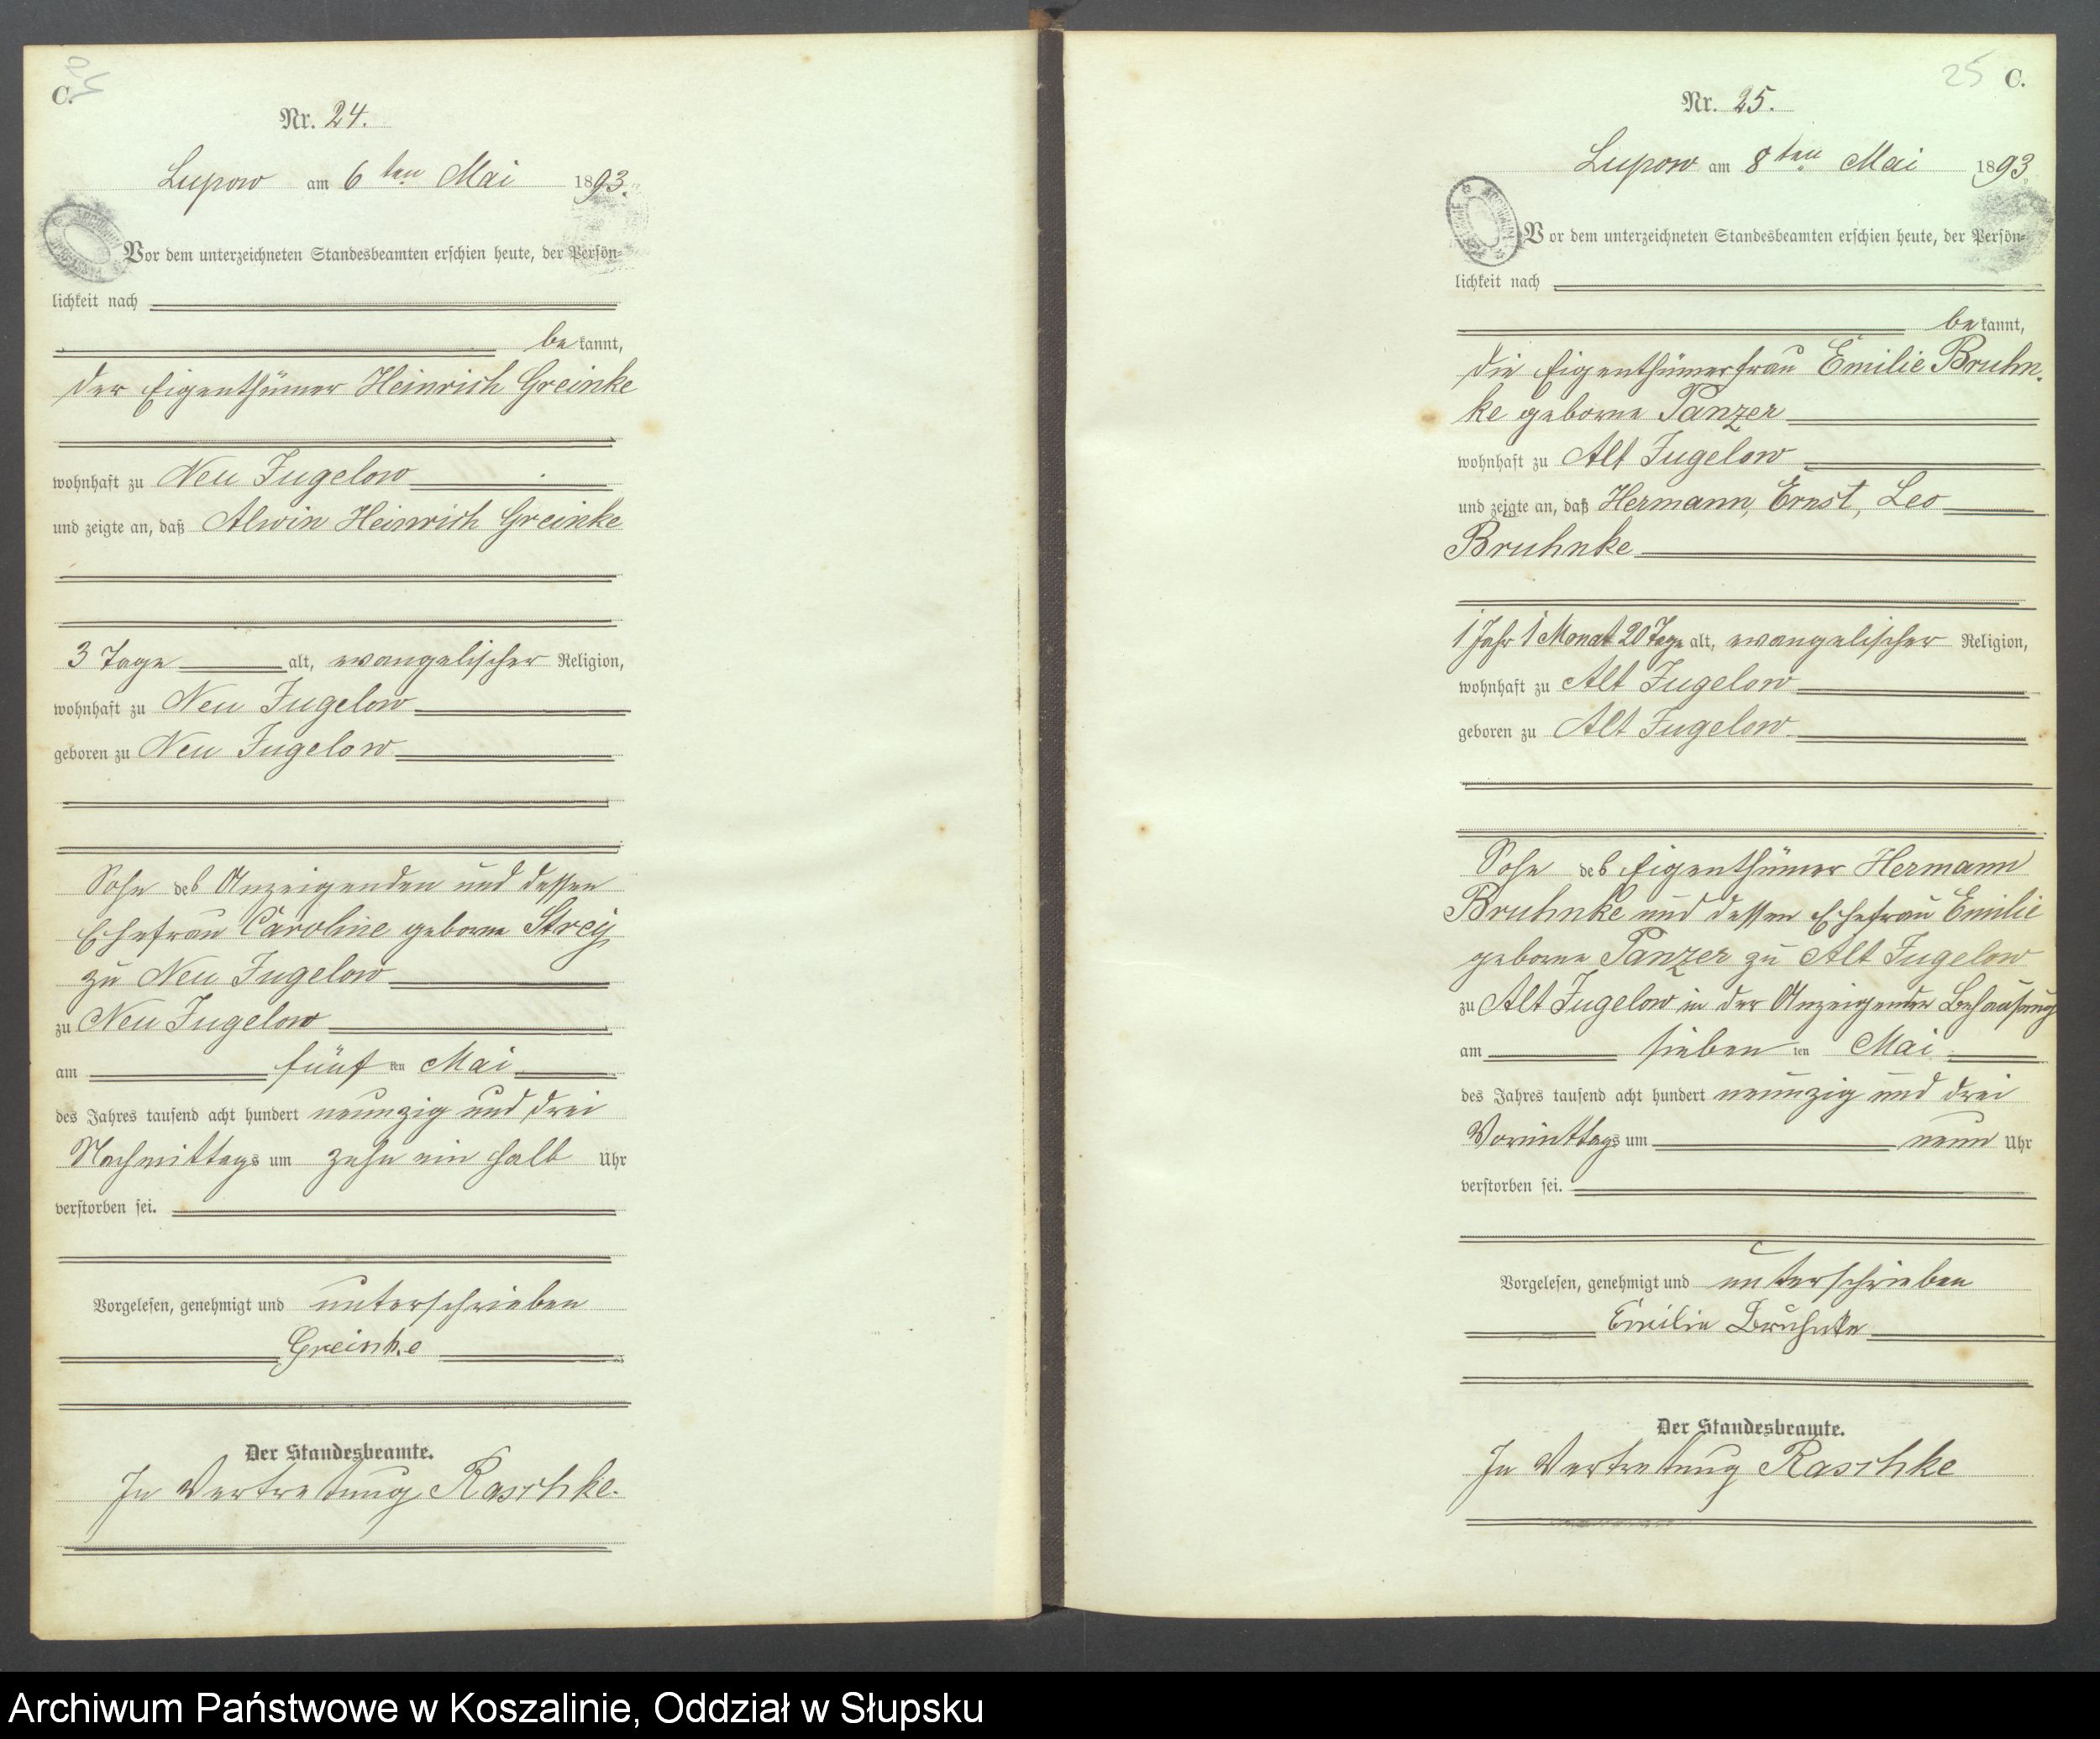 C.
Nr. 24.
Lupow am 6ten Mai 1893.
Vor dem unterzeichneten Standesbeamten erschien heute, der Persön-
lichkeit nach
bekannt,
der Eigenthümer Heinrich Greinke
wohnhaft zu Neu Jugelow
und zeigte an, daß Alwin Heinrich Greinke
3 Tage alt, evangelischer Religion,
wohnhaft zu Neu Jugelow
geboren zu Neu Jugelow
Sohn des Anzeigenden und dessen
Ehefrau Caroline geborne Strey
zu Neu Jugelow
zu Neu Jugelow
am fünften Mai
des Jahres tausend acht hundert neunzig und drei
Nachmittags um zehn ein halb Uhr
verstorben sei.
Vorgelesen, genehmigt und unterschrieben
Greinke
Der Standesbeamte.
In Vertretung Raschke.
25 C.
Nr. 25.
Lupow am 8ten Mai 1893
Vor dem unterzeichneten Standesbeamten erschien heute, der Persön-
lichkeit nach
bekannt,
die Eigenthümerfrau Emilie Bruhn-
ke geborne Panzer
wohnhaft zu Alt Jugelow
und zeigte an, daß Hermann, Ernst, Leo
Bruhnke
1 Jahr 1 Monat 20 Tage alt, evangelischer Religion,
wohnhaft zu Alt Jugelow
geboren zu Alt Jugelow
Sohn des Eigenthümer Hermann
Bruhnke und dessen Ehefrau Emilie
geborne Panzer zu Alt Jugelow
zu Alt Jugelow in der Anzeigender Behausung
am siebenten Mai
des Jahres tausend acht hundert neunzig und drei
Vormittags um neun Uhr
verstorben sei.
Vorgelesen, genehmigt und unterschrieben
Emilie Bruhnke
Der Standesbeamte.
In Vertretung Raschke
Archiwum Państwowe w Koszalinie, Oddział w Słupsku